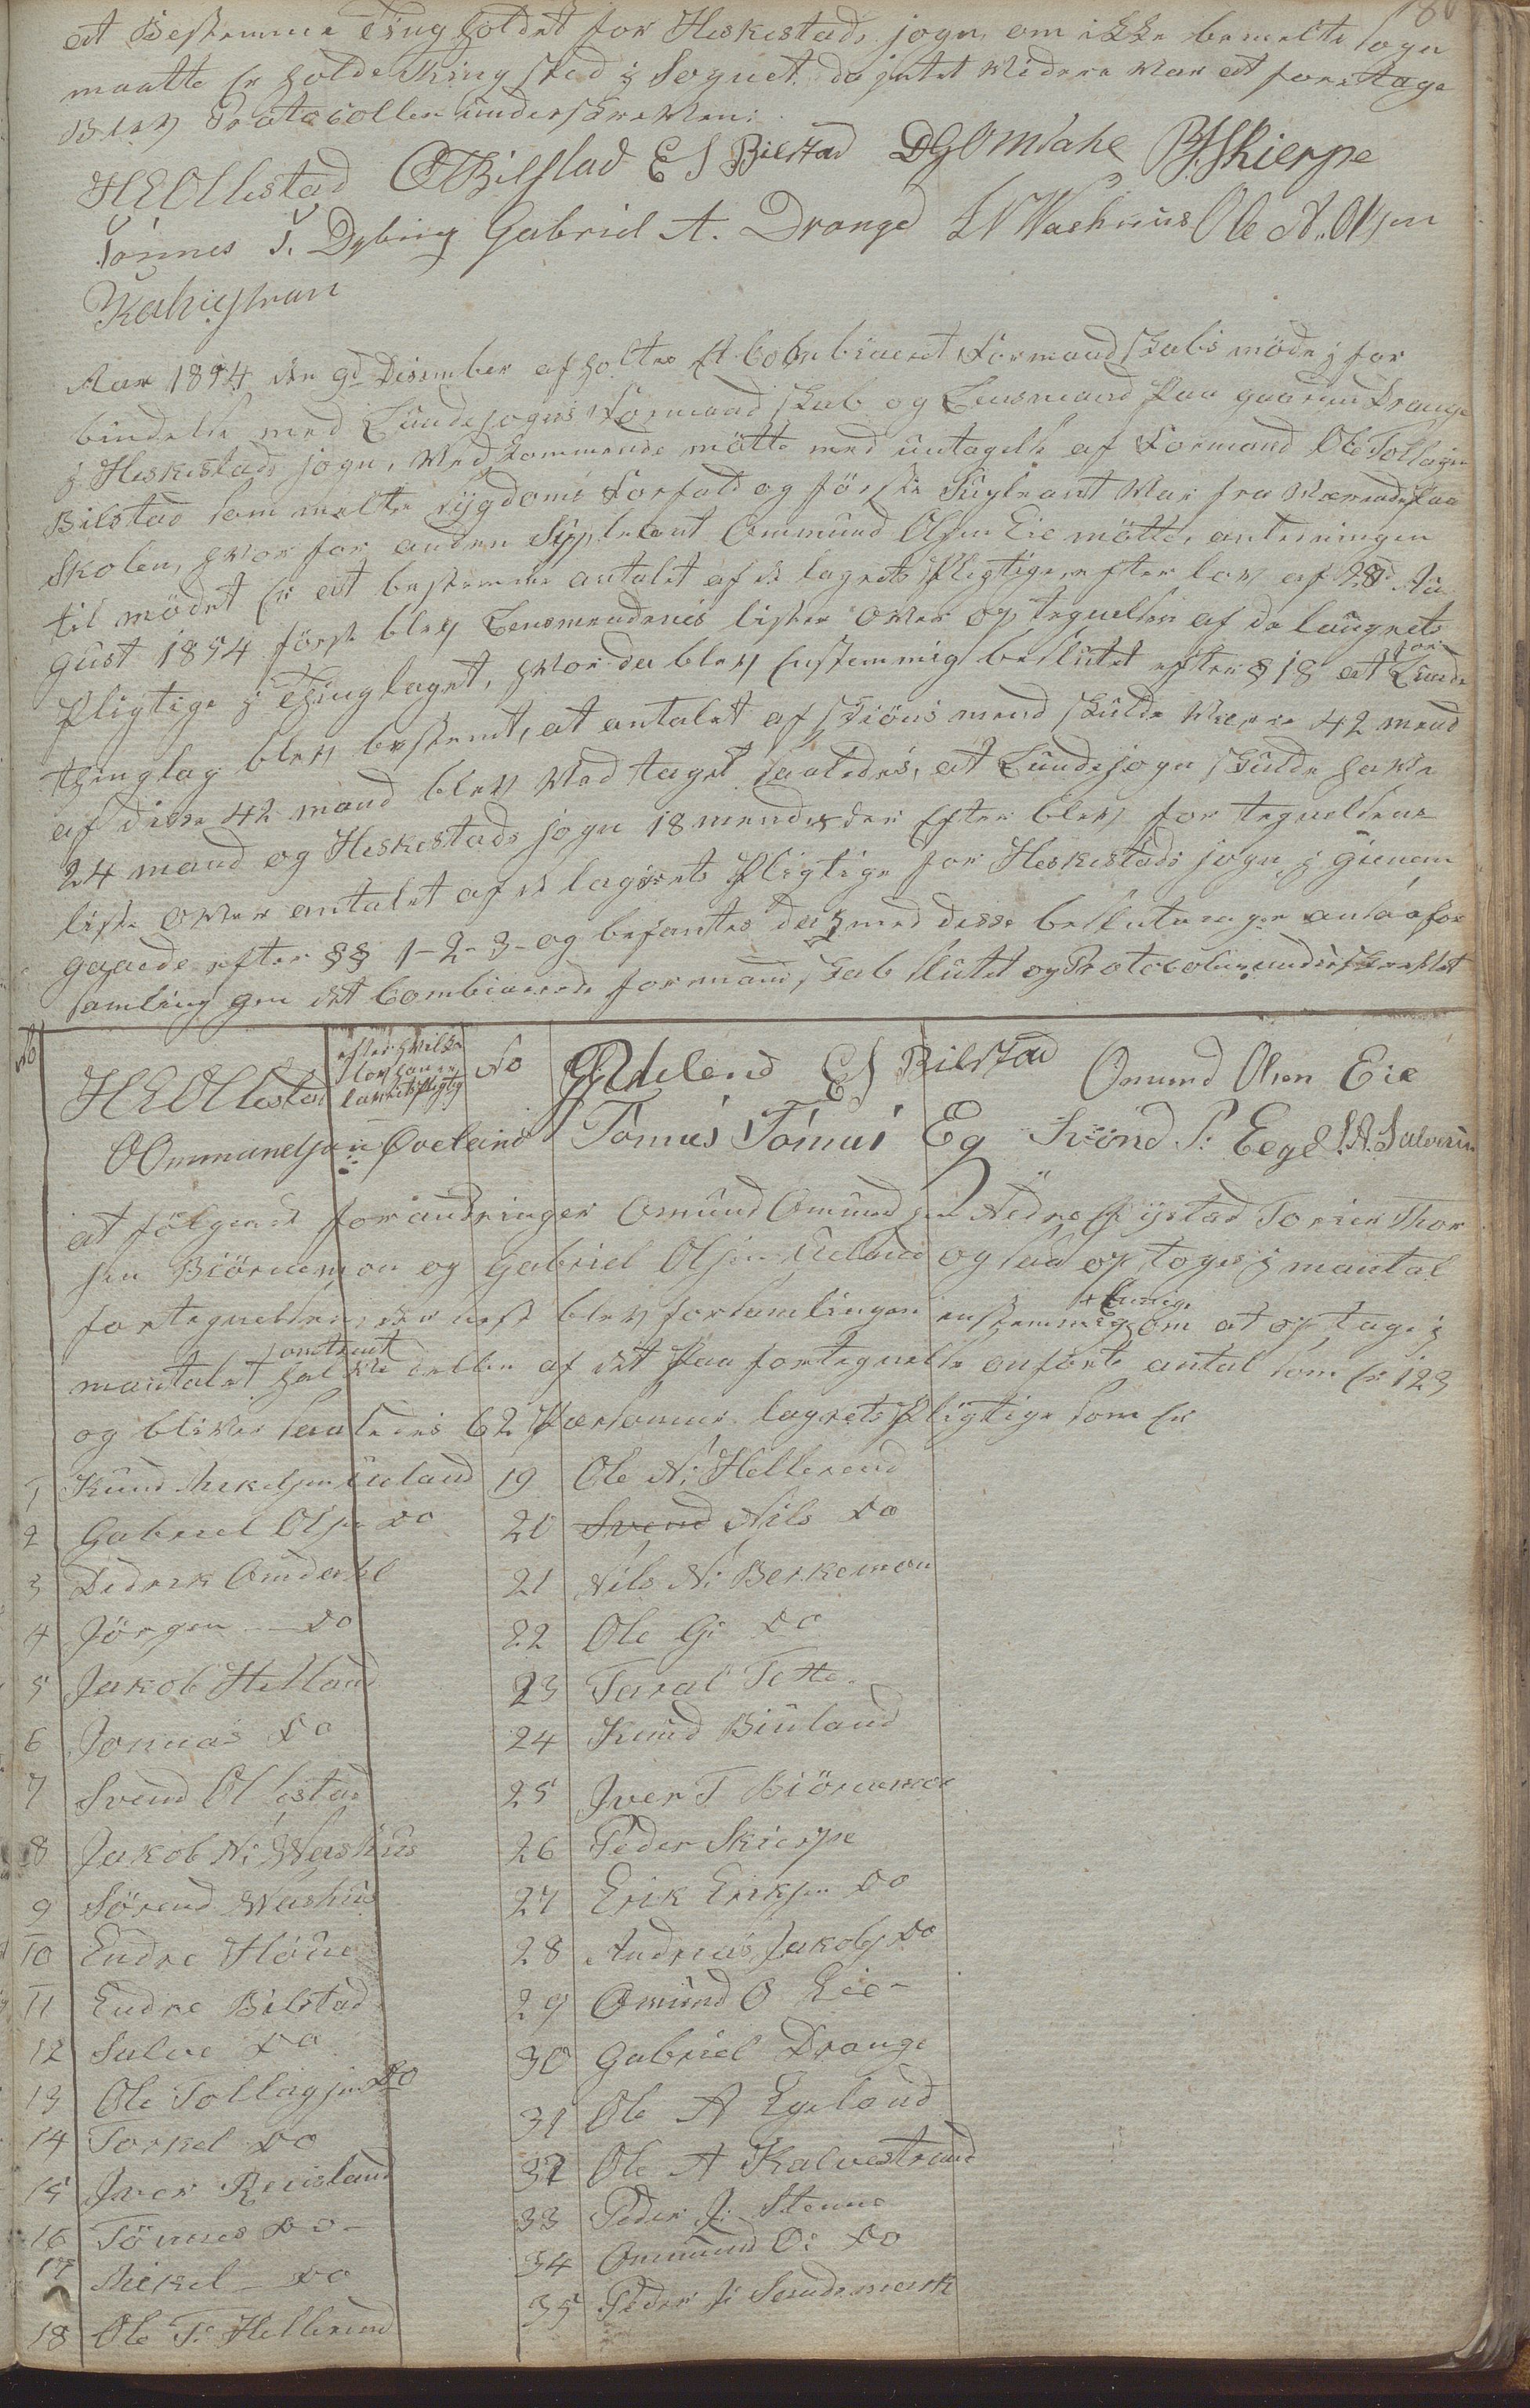 at Bestemme Tingholdet for Heskestads sogn, om ikke bemelte sogn
maatte er holde Thingsted i Sognet. da intet videre var at foretage
Blev Protocollen underskreven:
H E Ollestad O T Bilstad E S Bilstad D G Omdahl P J Skierpe
Tönnes T. Dybing Gabriel A. Drange S N Washuus Ole A. Olsen
Kalvestran
Aar 1854 den 9d Desember afholtes Et Combineret Formandskabs möde i for
bindelse med Lundesogns Formandskab og Lensmand Paa gaarden Drange
i Heskestads sogn, Vedkommende mötte med untagelse af Formand Ole Tollagsen
Bilstad som meldte sygdoms Forfald og förste Supleant var fraværende Paa
Skolen, hvorfor anden Suppleant Ommund Olsen Eie mötte, anledningen
til mödet Er at bestemme antalet af de lagrets Pligtige, efter lov af 28d Au
gust 1854 först blev Lensmendenes lister over optegnelsen af de laugrets
Pligtige i Thinglaget, hvor da blev Enstemmig beslutet efter § 18 at for Lunde
thinglag blev bestemt, at antalet af skiöns mend skulde være 42 mend
af disse 42 mand blev Vedtaget saaledes, at Lundesogn skulde have
24 mand og Heskestads sogn 18 mend. der Efter blev for tegneldens
liste over antalet af de lagrets Pligtige for Heskestads sogn i gienem
gaaede efter §§ 1-2-3- og befantes dermed disse beslutninger ansaa for
samlingen det Combinerede formandskab slutet og Protocolen underskrevet
No H E Ollestad efter hvilke lov han er laurets pligtig No G Aadeland E S Bilstad Omund Olsen Eie
O Ommundsen Qveland Tönnes Tönnes Eg Svend P. Eege S. A. Salvesen
at fölgende forandringer Omund Omundsen Nedre Fystad Torien Thor
sen Biörnemon og Gabriel Olsen Ueland og saa optoges i mantal
fortegnelsen, der nest blev forsamlingen enstemmig Enige om at optage i
mantalet omtrent halvdelen af det Paa fortegnelse anförte antal som Er 123
og bliver saaledes 62 Personer lagrets Pligtige som Er
1 Knud Mikelsen Ueland 19 Ole N. Hellerend
2 Gabriel Olsen do 20 Svend Nils do
3 Didrik Omdahl 21 Nils N. Berkemon
4 Jörgen do 22 Ole G. do
5 Jakob Helland 23 Taral Tette
6 Jonnas do 24 Knud Biuland
7 Svend Ollestad 25 Iver T Biörnemoe
8 Jakob N. Washus 26 Peder Skierpe
9 Sörend Washus 27 Erik Eriksen do
10 Endre Höùe 28 Andreas Jakobs do
11 Endre Bilstad 29 Omund O Eie
12 Salve do 30 Gabriel Drange
13 Ole Tollagsen do 31 Ole A Egeland
14 Torkel do 32 Ole A Kalvestrand
15 Iver Reusland 33 Peder J. Stenne
16 Tönnes do 34 Ommund O. do
17 Mickel do 35 Peder J. Sandsmark
18 Ole T. Hellerend